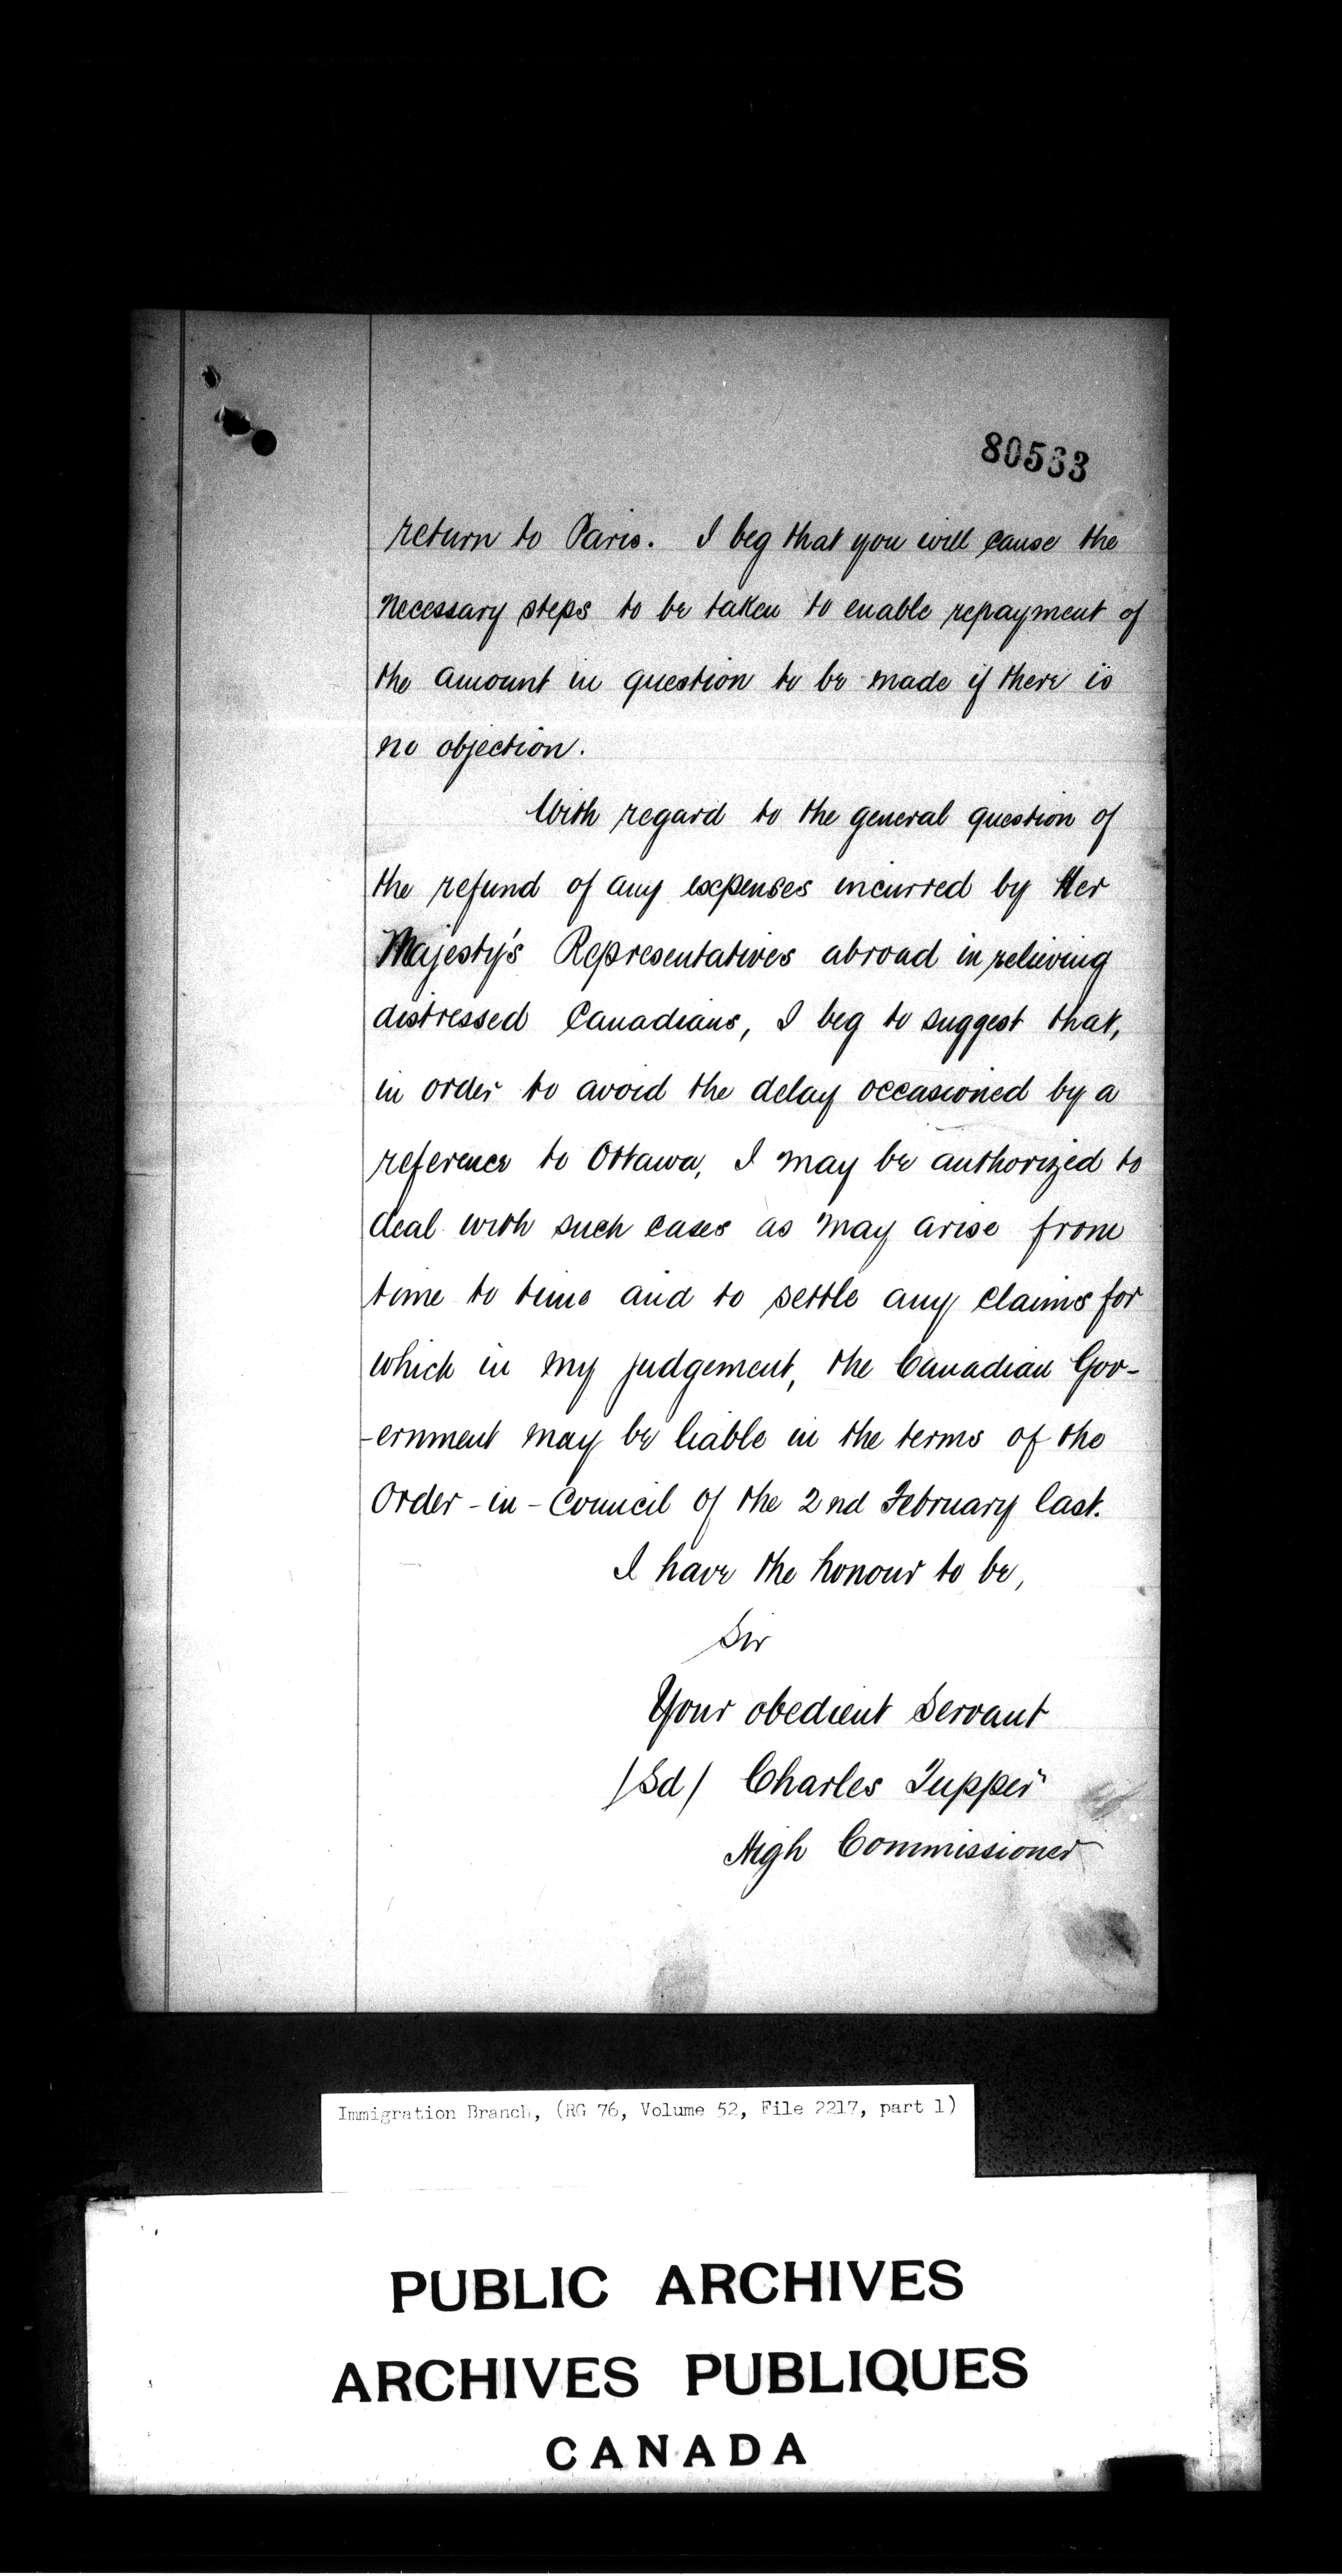 80533
return to Paris. I beg that you will cause the
necessary steps to be taken to enable repayment of
the amount in question to be made if there is
no objection.
With regard to the general question of
the refund of any expenses incurred by Her
Majesty's Representatives abroad in relieving
distressed Canadians, I beg to suggest that,
in order to avoid the delay occasioned by a
reference to Ottawa, I may be authorized to
deal with such cases as may arise from
time to time and to settle any claims for
which in my judgement, the Canadian Gov-
-ernment may be liable in the terms of the
Order-in-Council of the 2nd February last.
I have the honour to be,
Sir
Your obedient Servant
/Sd/ Charles Tupper
High Commissioner
Immigration Branch, (RG 76, Volume 52, File 2217, part 1)
PUBLIC ARCHIVES
ARCHIVES PUBLIQUES
CANADA